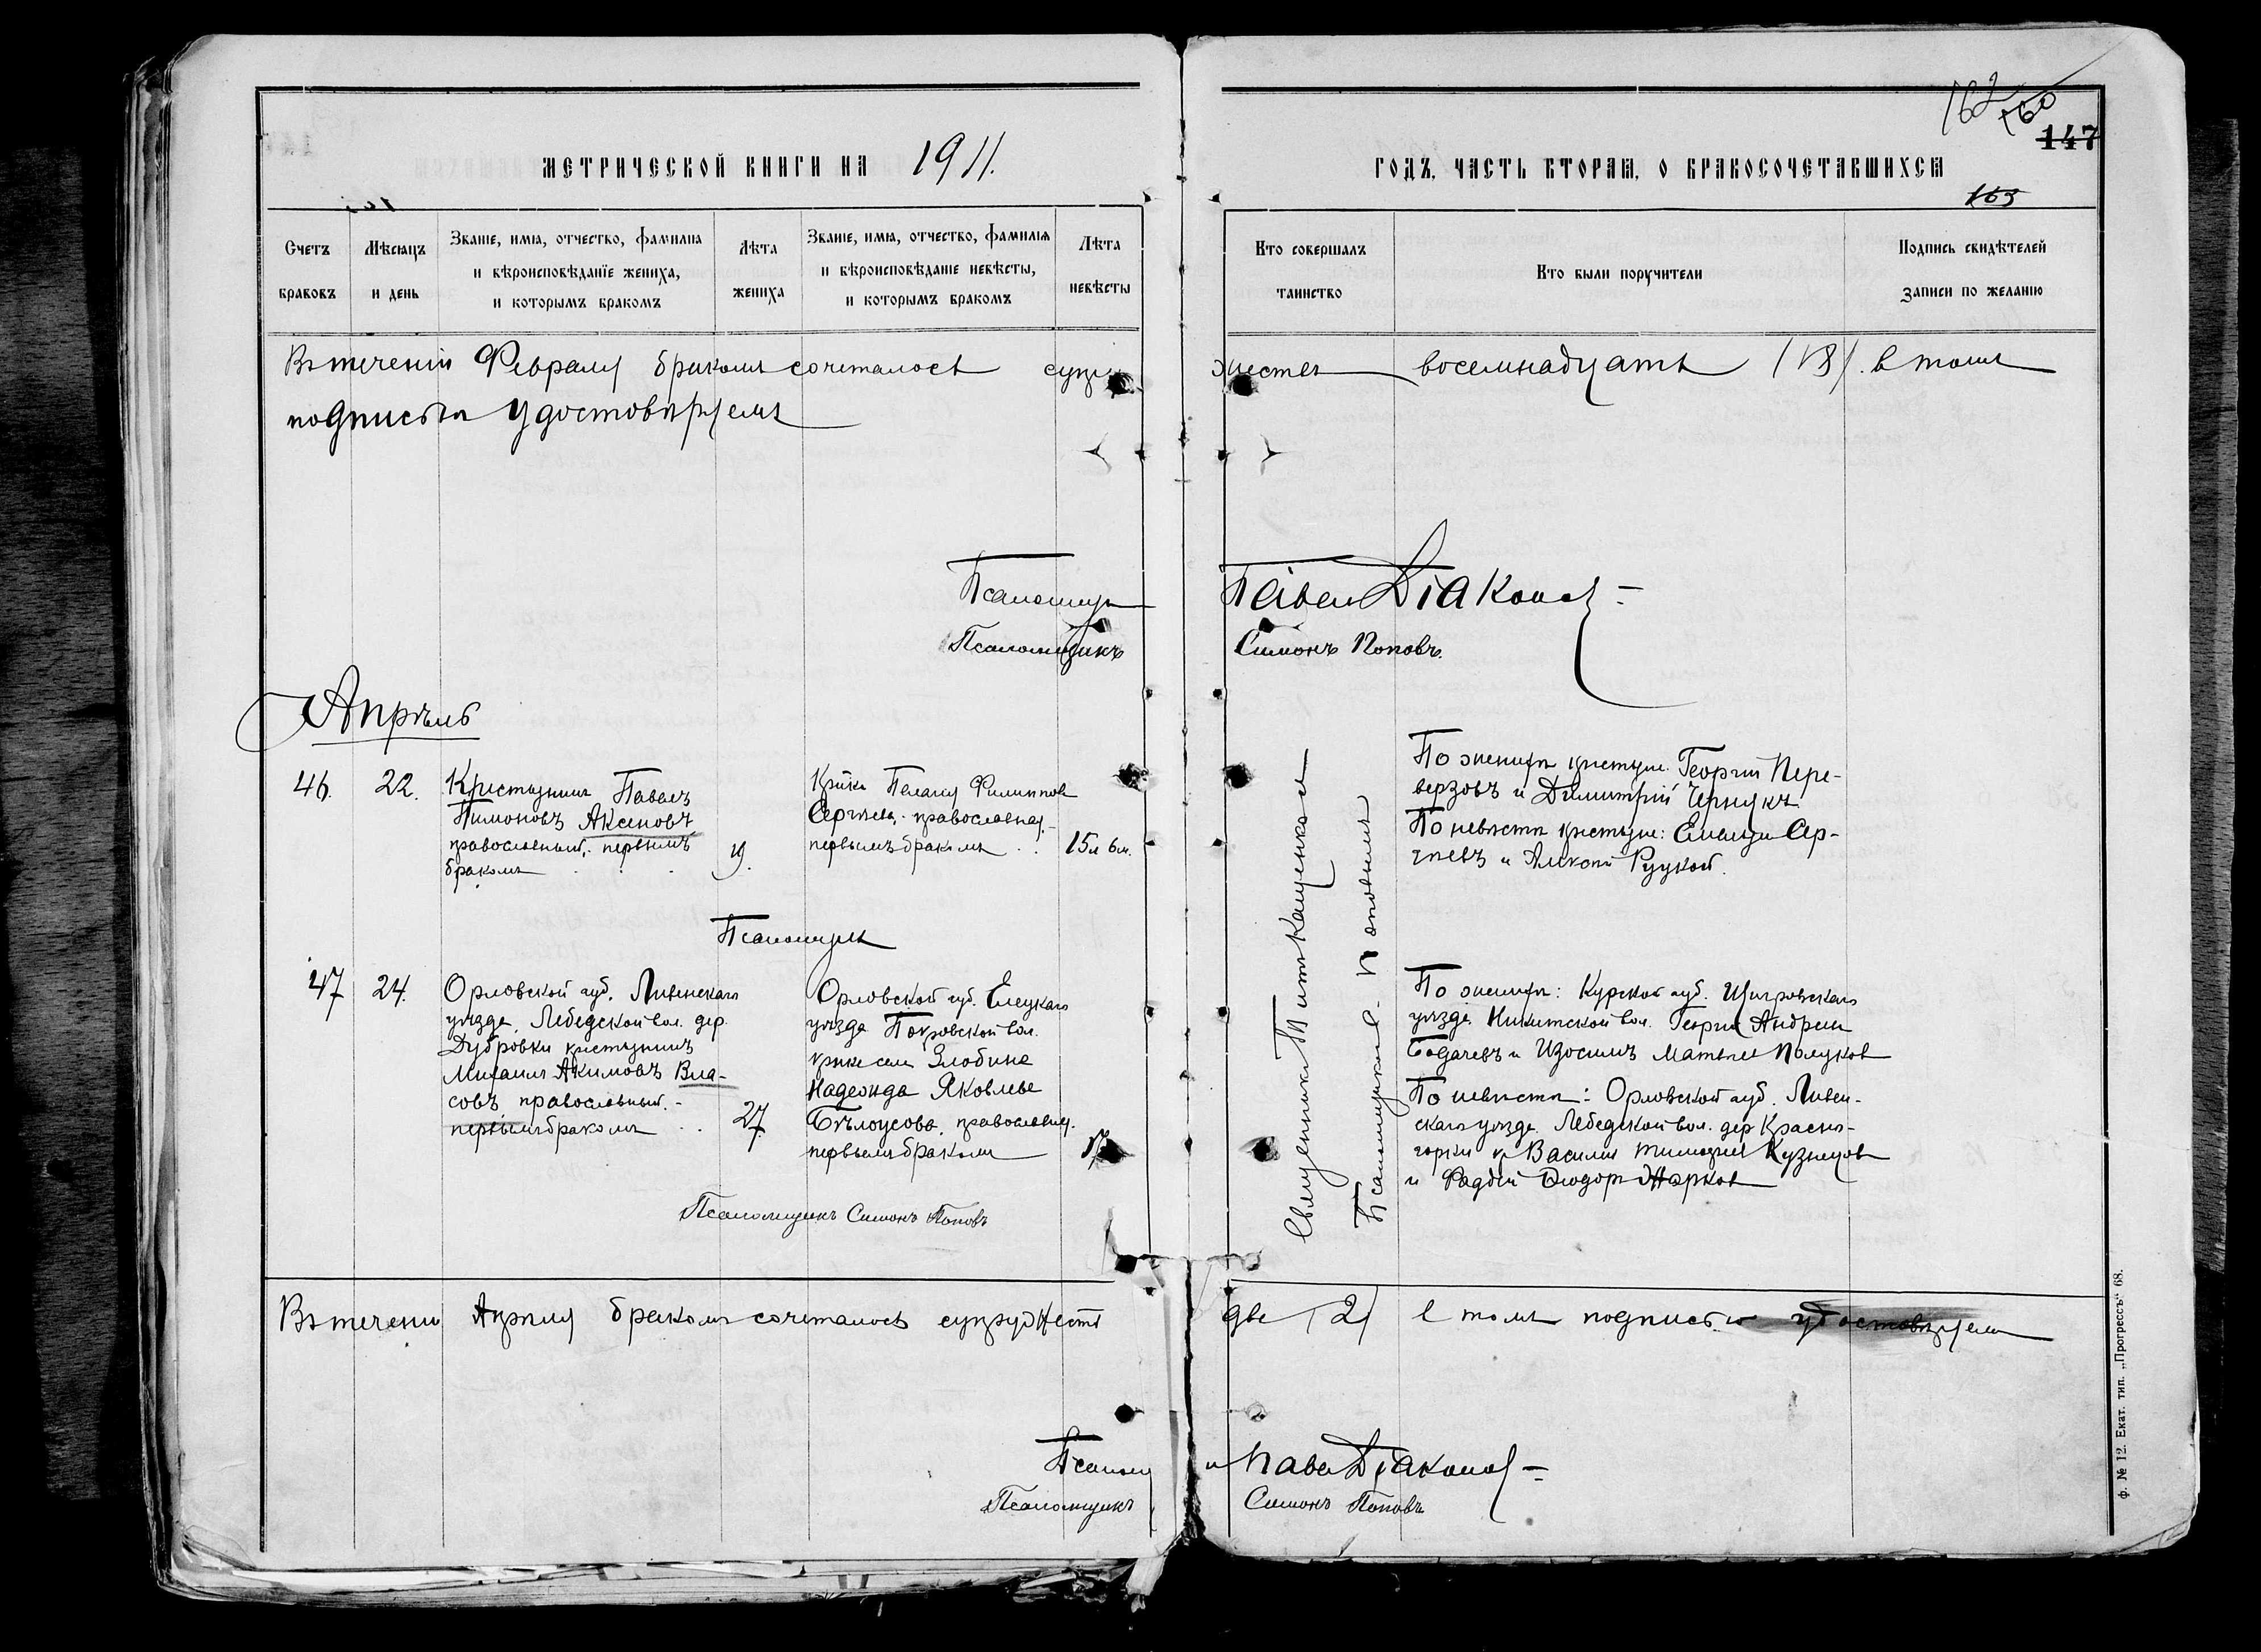 МЕТРИЧЕСКОЙ КНИГИ НА 1911.
ГОДЪ, ЧАСТЬ ВТОРАЯ, О БРАКОСОЧЕТАВШИХСЯ
162
160
147
163
Счетъ браковъ
Мѣсяцъ и день
Званіе, имя, отчество, фамилія и вѣроисповѣданіе жениха, и которымъ бракомъ
Лѣта жениха
Званіе, имя, отчество, фамилія и вѣроисповѣданіе невѣсты, и которымъ бракомъ
Лѣта невѣсты
Кто совершалъ таинство
Кто были поручители
Подпись свидѣтелей записи по желанію
Въ теченіи Февраля бракомъ сочеталось супружествъ восемнадцать (18). в томъ
подписью удостовѣряемъ
Псаломщикъ Павелъ Діаконовъ
Псаломщикъ Симонъ Поповъ.
Апрѣль
46. 22.
Крестьянинъ Павелъ
Пимоновъ Аксеновъ
православный, первымъ
бракомъ
19.
Кр-ка Пелагія Филиппова
Сергѣева, православная,
первымъ бракомъ
15 л 6 м.
По женихѣ крестьяне: Георгій Пере-
верзовъ и Димитрій Чернякъ
По невѣстѣ крестьяне: Сер-
гѣевъ и Алексѣй Руцкой.
Псаломщикъ
47 24.
Орловской губ. Ливенскаго
уѣзда, Лебедской вол. дер.
Дубровки крестьянинъ
Михаилъ Акимовъ Вла-
совъ, православный,
первымъ бракомъ
27.
Орловской губ. Елецкаго
уѣзда Покровской вол.
кр-ка села Злобина
Надежда Яковлева
Бѣлоусова, православная,
первымъ бракомъ
17
Священникъ Титъ Кащенко съ
Псаломщикомъ Поповымъ
По женихѣ: Курской губ. Щигровскаго
уѣзда Никитской вол. Георгій Андреевъ
Богачевъ и Изосимъ Матвѣевъ Полуковъ
По невѣстѣ: Орловской губ. Ливен-
скаго уѣзда Лебедской вол. дер Красно-
горки кр Василій Тимофеевъ Кузнецовъ
и Фаддей Ѳеодоръ Жарковъ
Псаломщикъ Симонъ Поповъ
Въ теченіи Апрѣля бракомъ сочеталось супружествъ два (2) в томъ подписью удостовѣряемъ
Псаломщикъ Павелъ Діаконовъ
Псаломщикъ Симонъ Поповъ
ф. № 12. Екат. тип. „Прогрессъ“ 68.